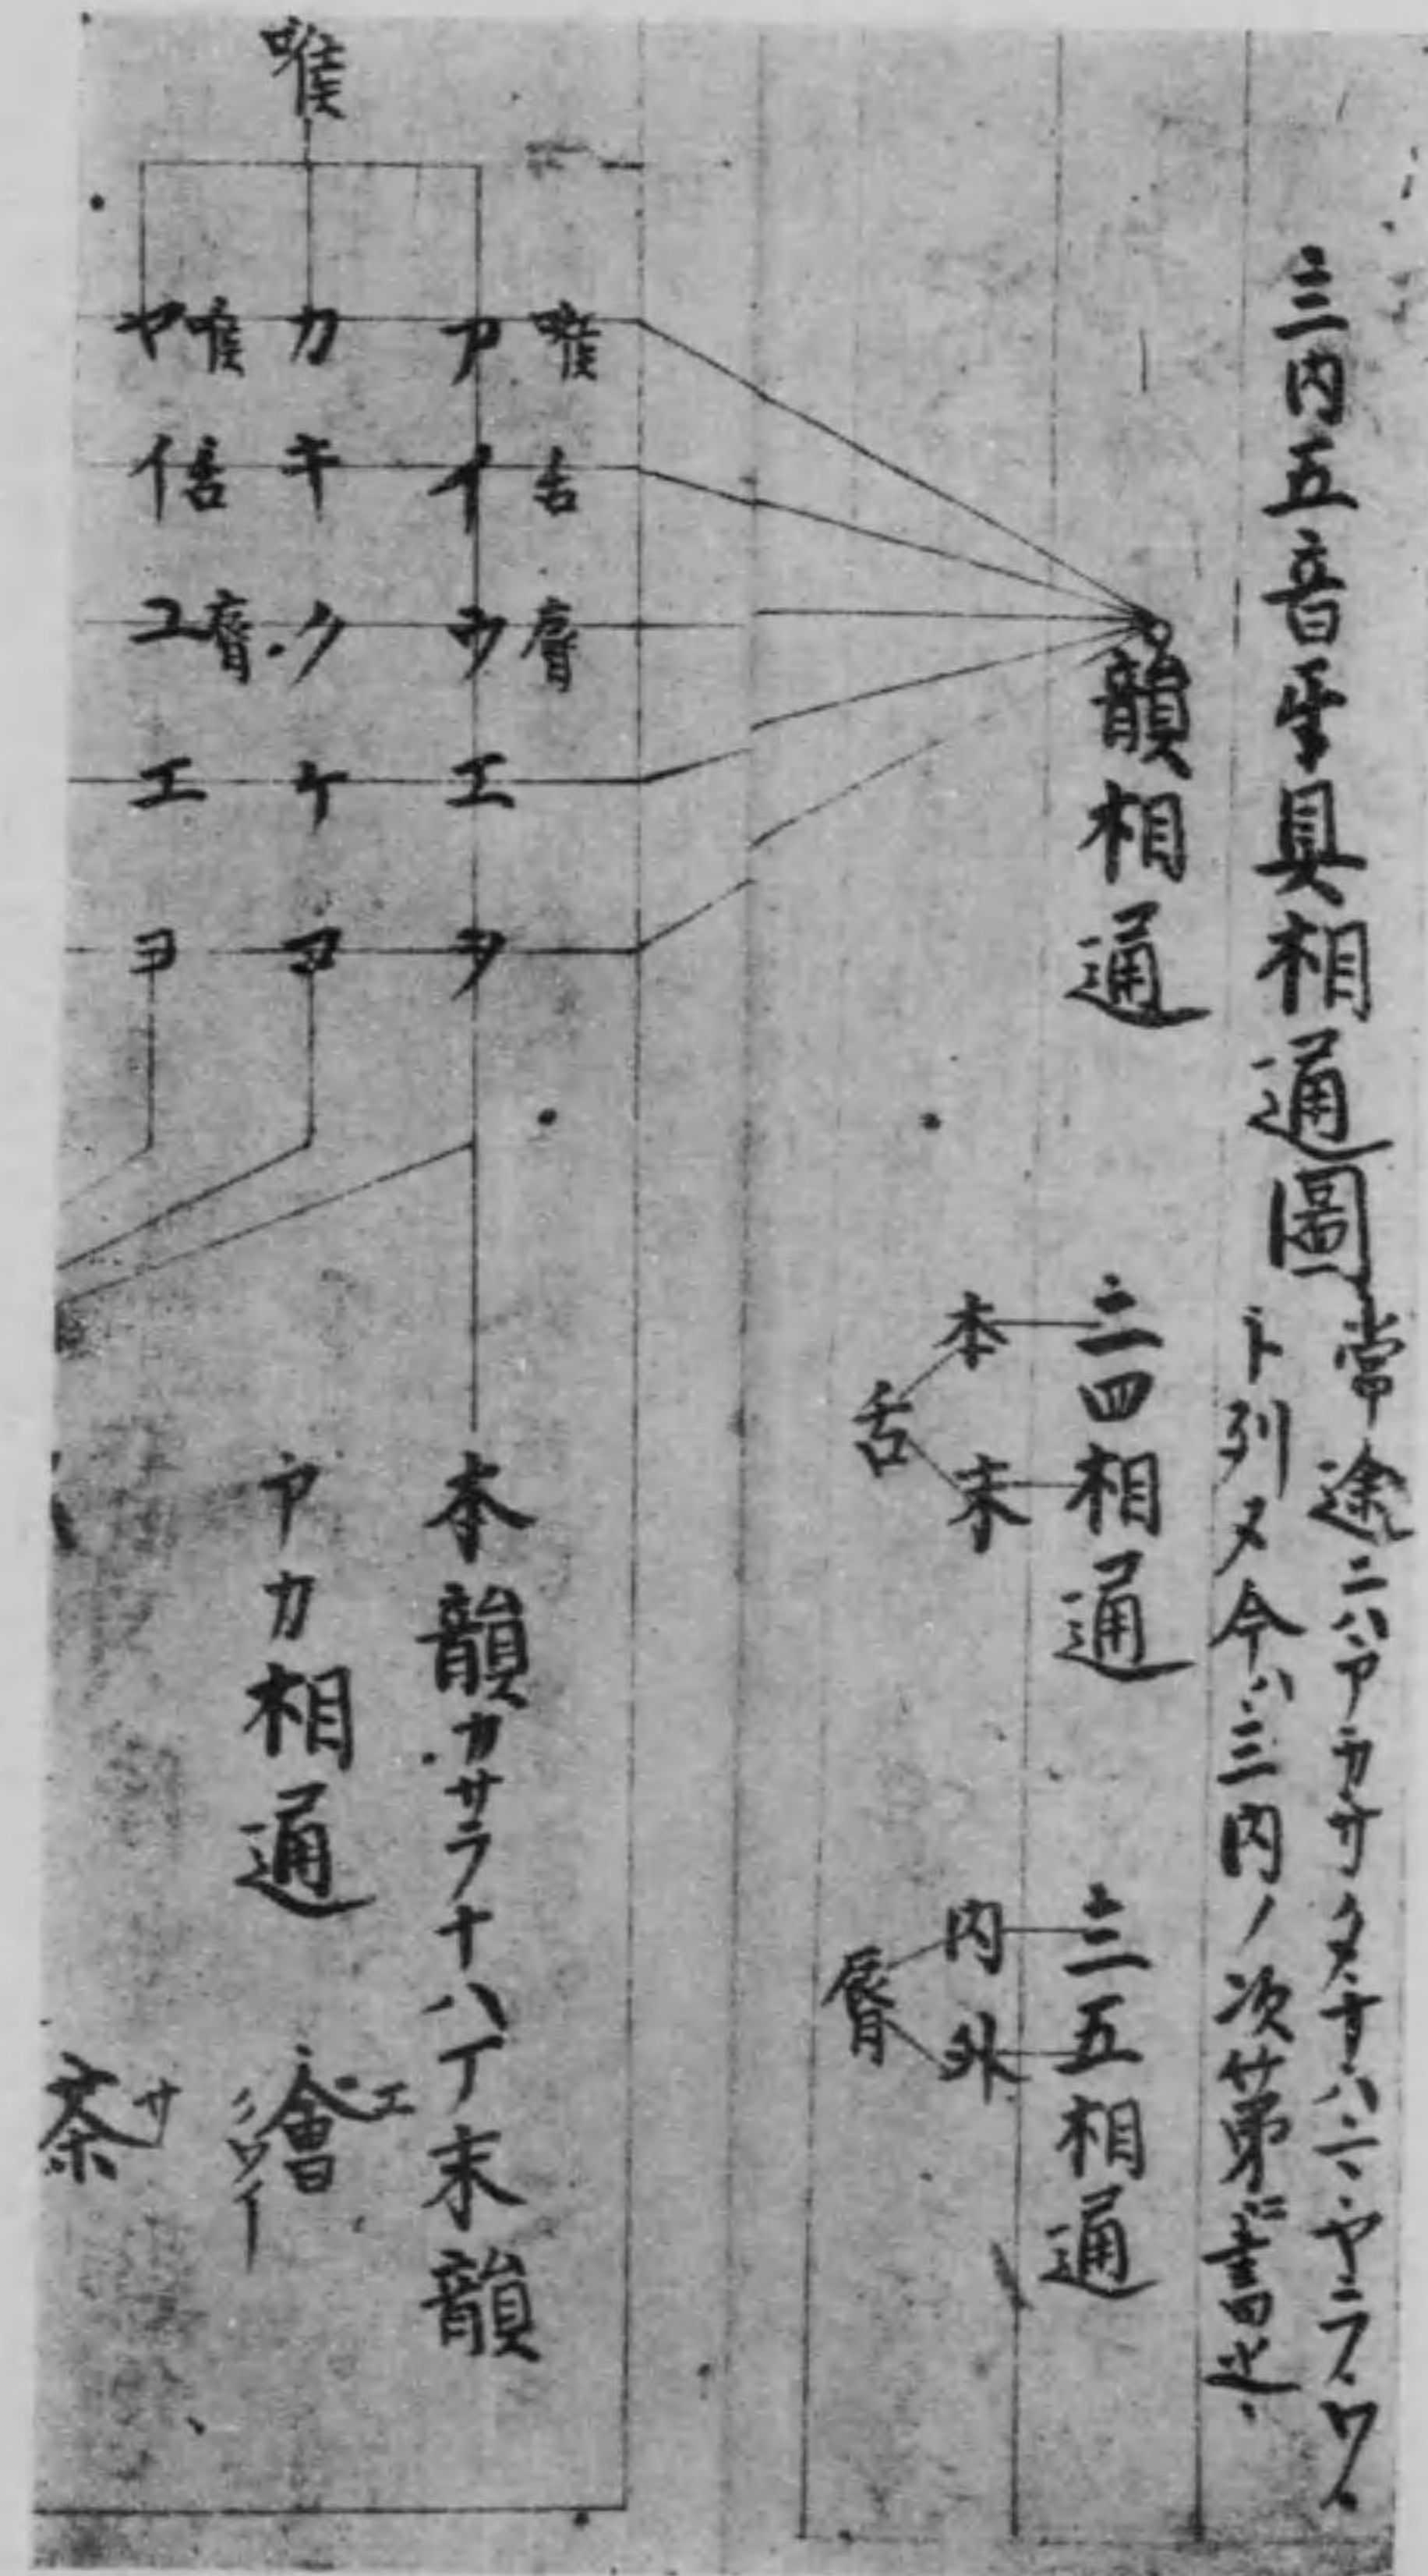 三内五音互具相通圖
常途ニハアカサタナハマヤラワ
ト列ヌ今ハ三内ノ次第ニ書之
韻相通
二四相通
本
末
舌
三五相通
内
外
脣
喉
舌
脣
アイウエヲ
カキクケコ
喉
舌
脣
ヤイユエヨ
喉
本韻カサラナハマ末韻
アカ相通
會
エ
茶
サ